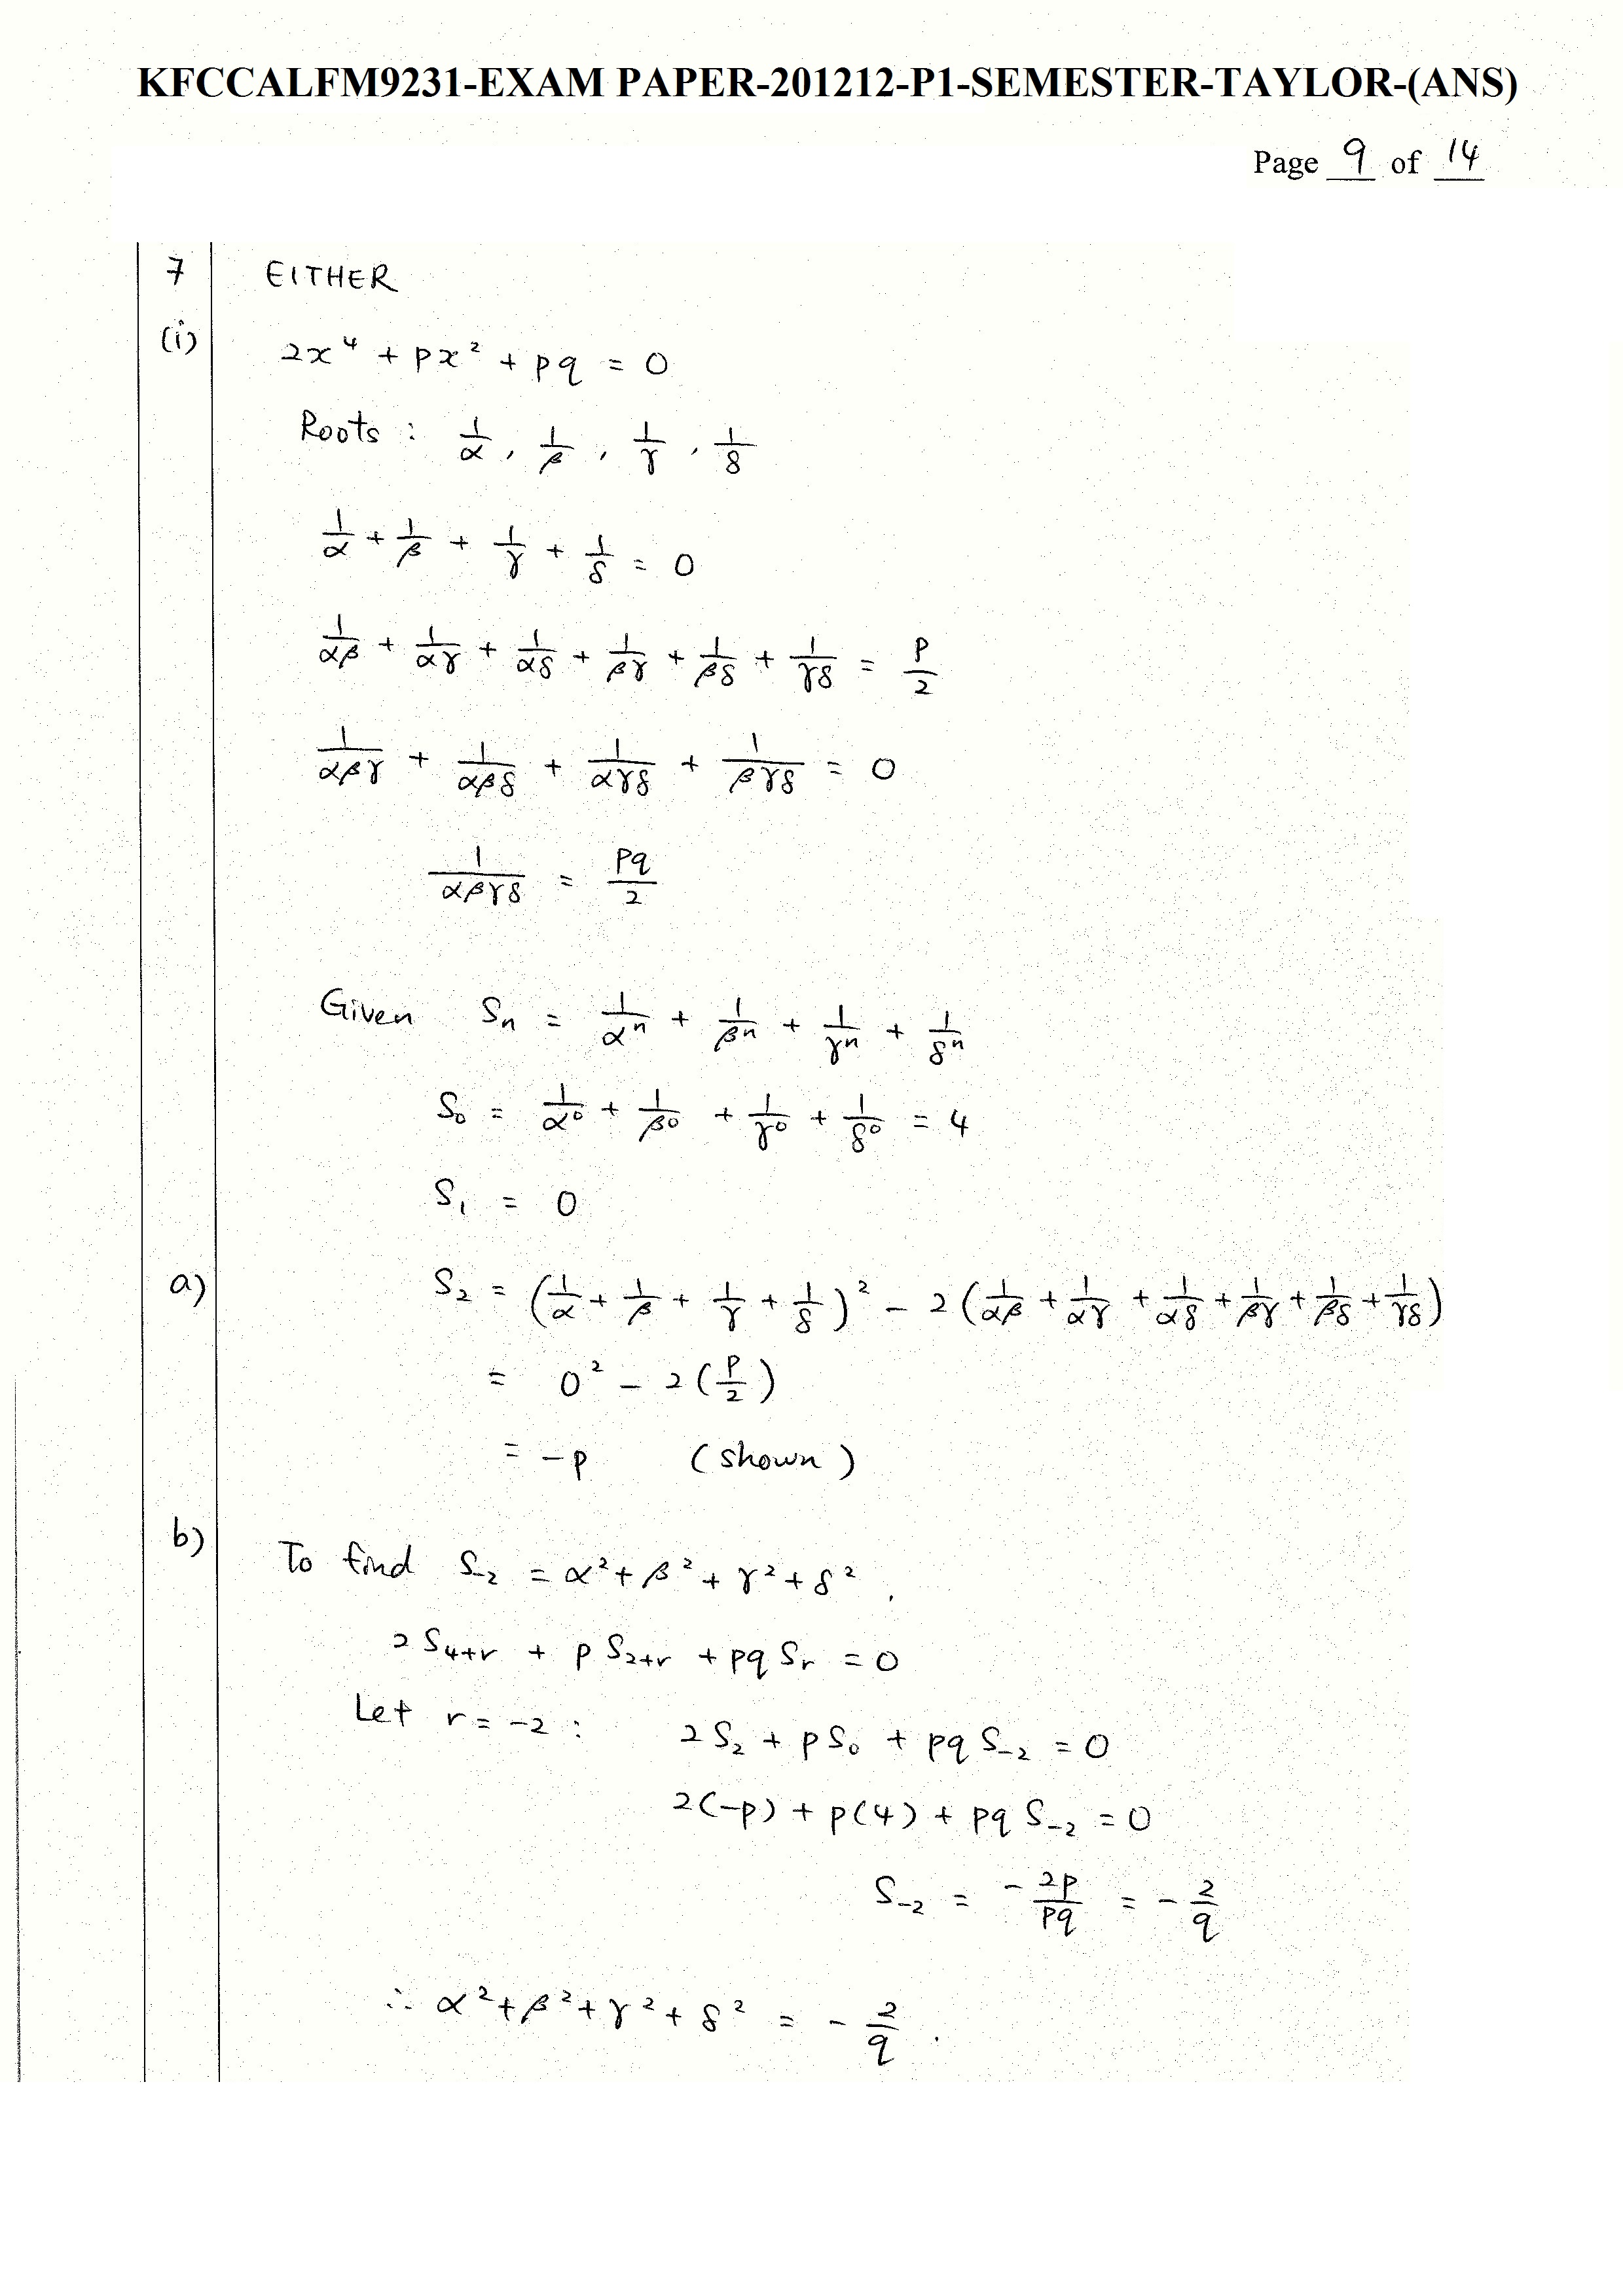 KFCCALFM9231-EXAM PAPER-201212-P1-SEMESTER-TAYLOR-(ANS)
Page 9 of 14
7 EITHER
(i) 2x⁴ + px² + pq = 0
Roots : 1/α , 1/β , 1/γ , 1/δ
1/α + 1/β + 1/γ + 1/δ = 0
1/αβ + 1/αγ + 1/αδ + 1/βγ + 1/βδ + 1/γδ = p/2
1/αβγ + 1/αβδ + 1/αγδ + 1/βγδ = 0
1/αβγδ = pq/2
Given Sₙ = 1/αⁿ + 1/βⁿ + 1/γⁿ + 1/δⁿ
S₀ = 1/α⁰ + 1/β⁰ + 1/γ⁰ + 1/δ⁰ = 4
S₁ = 0
a) S₂ = (1/α + 1/β + 1/γ + 1/δ)² - 2(1/αβ + 1/αγ + 1/αδ + 1/βγ + 1/βδ + 1/γδ)
= 0² - 2(p/2)
= -p (shown)
b) To find S₋₂ = α² + β² + γ² + δ² .
2S₄₊ᵣ + pS₂₊ᵣ + pqSᵣ = 0
Let r = -2 : 2S₂ + pS₀ + pqS₋₂ = 0
2(-p) + p(4) + pqS₋₂ = 0
S₋₂ = -2p/pq = -2/q
∴ α² + β² + γ² + δ² = -2/q .